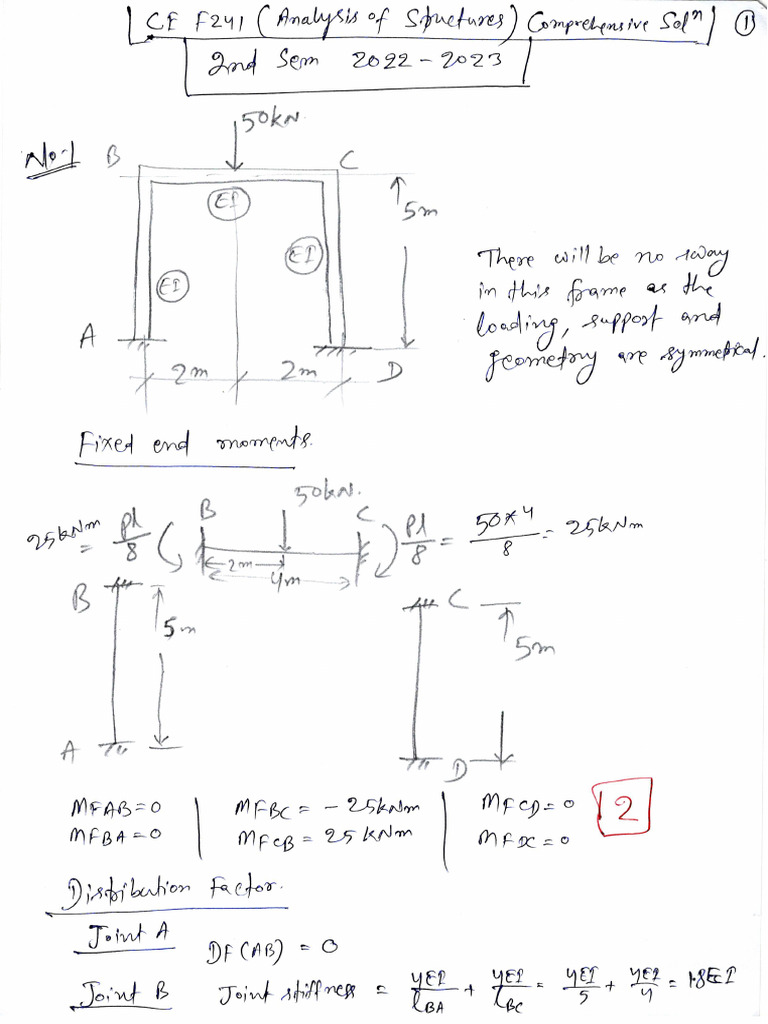 CE F241 (Analysis of Structures) Comprehensive Solⁿ ①
2nd Sem 2022-2023
50kN
No-1 B C
EI
5m
EI
EI
There will be no sway
in this frame as the
loading, support and
geometry are symmetrical.
A
2m 2m D
Fixed end moments.
50kN.
B C
25kNm = Pl/8 Pl/8 = 50*4/8 = 25kNm
2m
4m
B C
5m
5m
A D
MFAB=0 MFBC = -25kNm MFCD=0 2
MFBA=0 MFCB = 25kNm MFDC=0
Distribution Factor.
Joint A DF(AB) = 0
Joint B Joint stiffness = 4EI/lBA + 4EI/lBC = 4EI/5 + 4EI/4 = 1.8EI